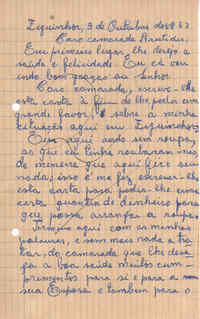 Ziguinchor, 3 de Outubro de 1963
Caro camarada Aristides
Em primeiro lugar, lhe desejo a
saúde e felicidade. Eu cá vou
indo bem graças ao Senhor.
Caro camarada, escrevo-lhe
esta carta à fim de lhe pedir um
grande favor, é sobre a minha
situação aqui em Ziguinchor.
aqui ando sem roupas,
as que eu tinha roubaram-mas
de maneira que aqui fico sem
nada; isso é me fez escrever-lhe
esta carta para pedir-lhe uma
certa quantia de dinheiro para
que possa arranjar a roupa.
Termino aqui com as minhas
palavras, e sem mais nada a tra-
tar, do camarada que lhe dese-
ja a boa saúde muitos cum-
primentos para si e para a
sua Esposa e também para o